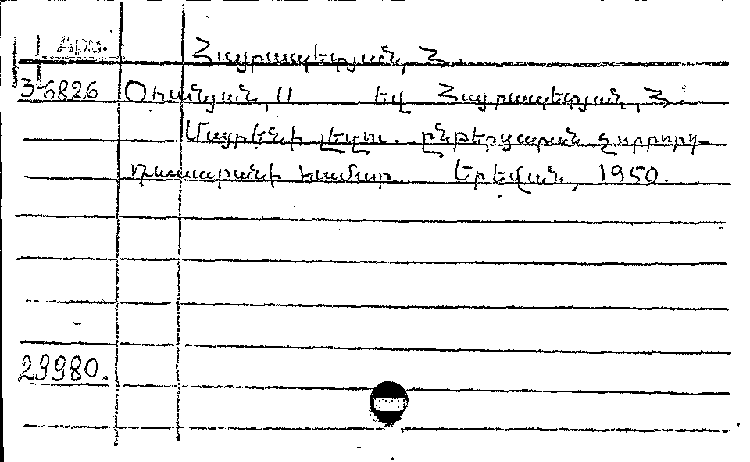 Арм.
Հայրապետյան, Հ.
3-6826 Օհանյան, Ա եվ Հայրապետյան, Հ.
Մայրենի լեզու. ընթերցարան չորրորդ
դասարանի համար Երեվան, 1950.
29980.